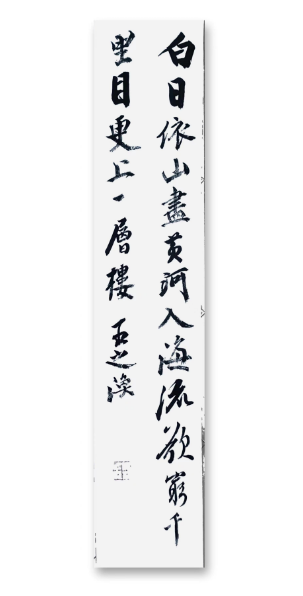 白日依山盡黃河入海流欲窮千
里目更上一層樓 王之渙